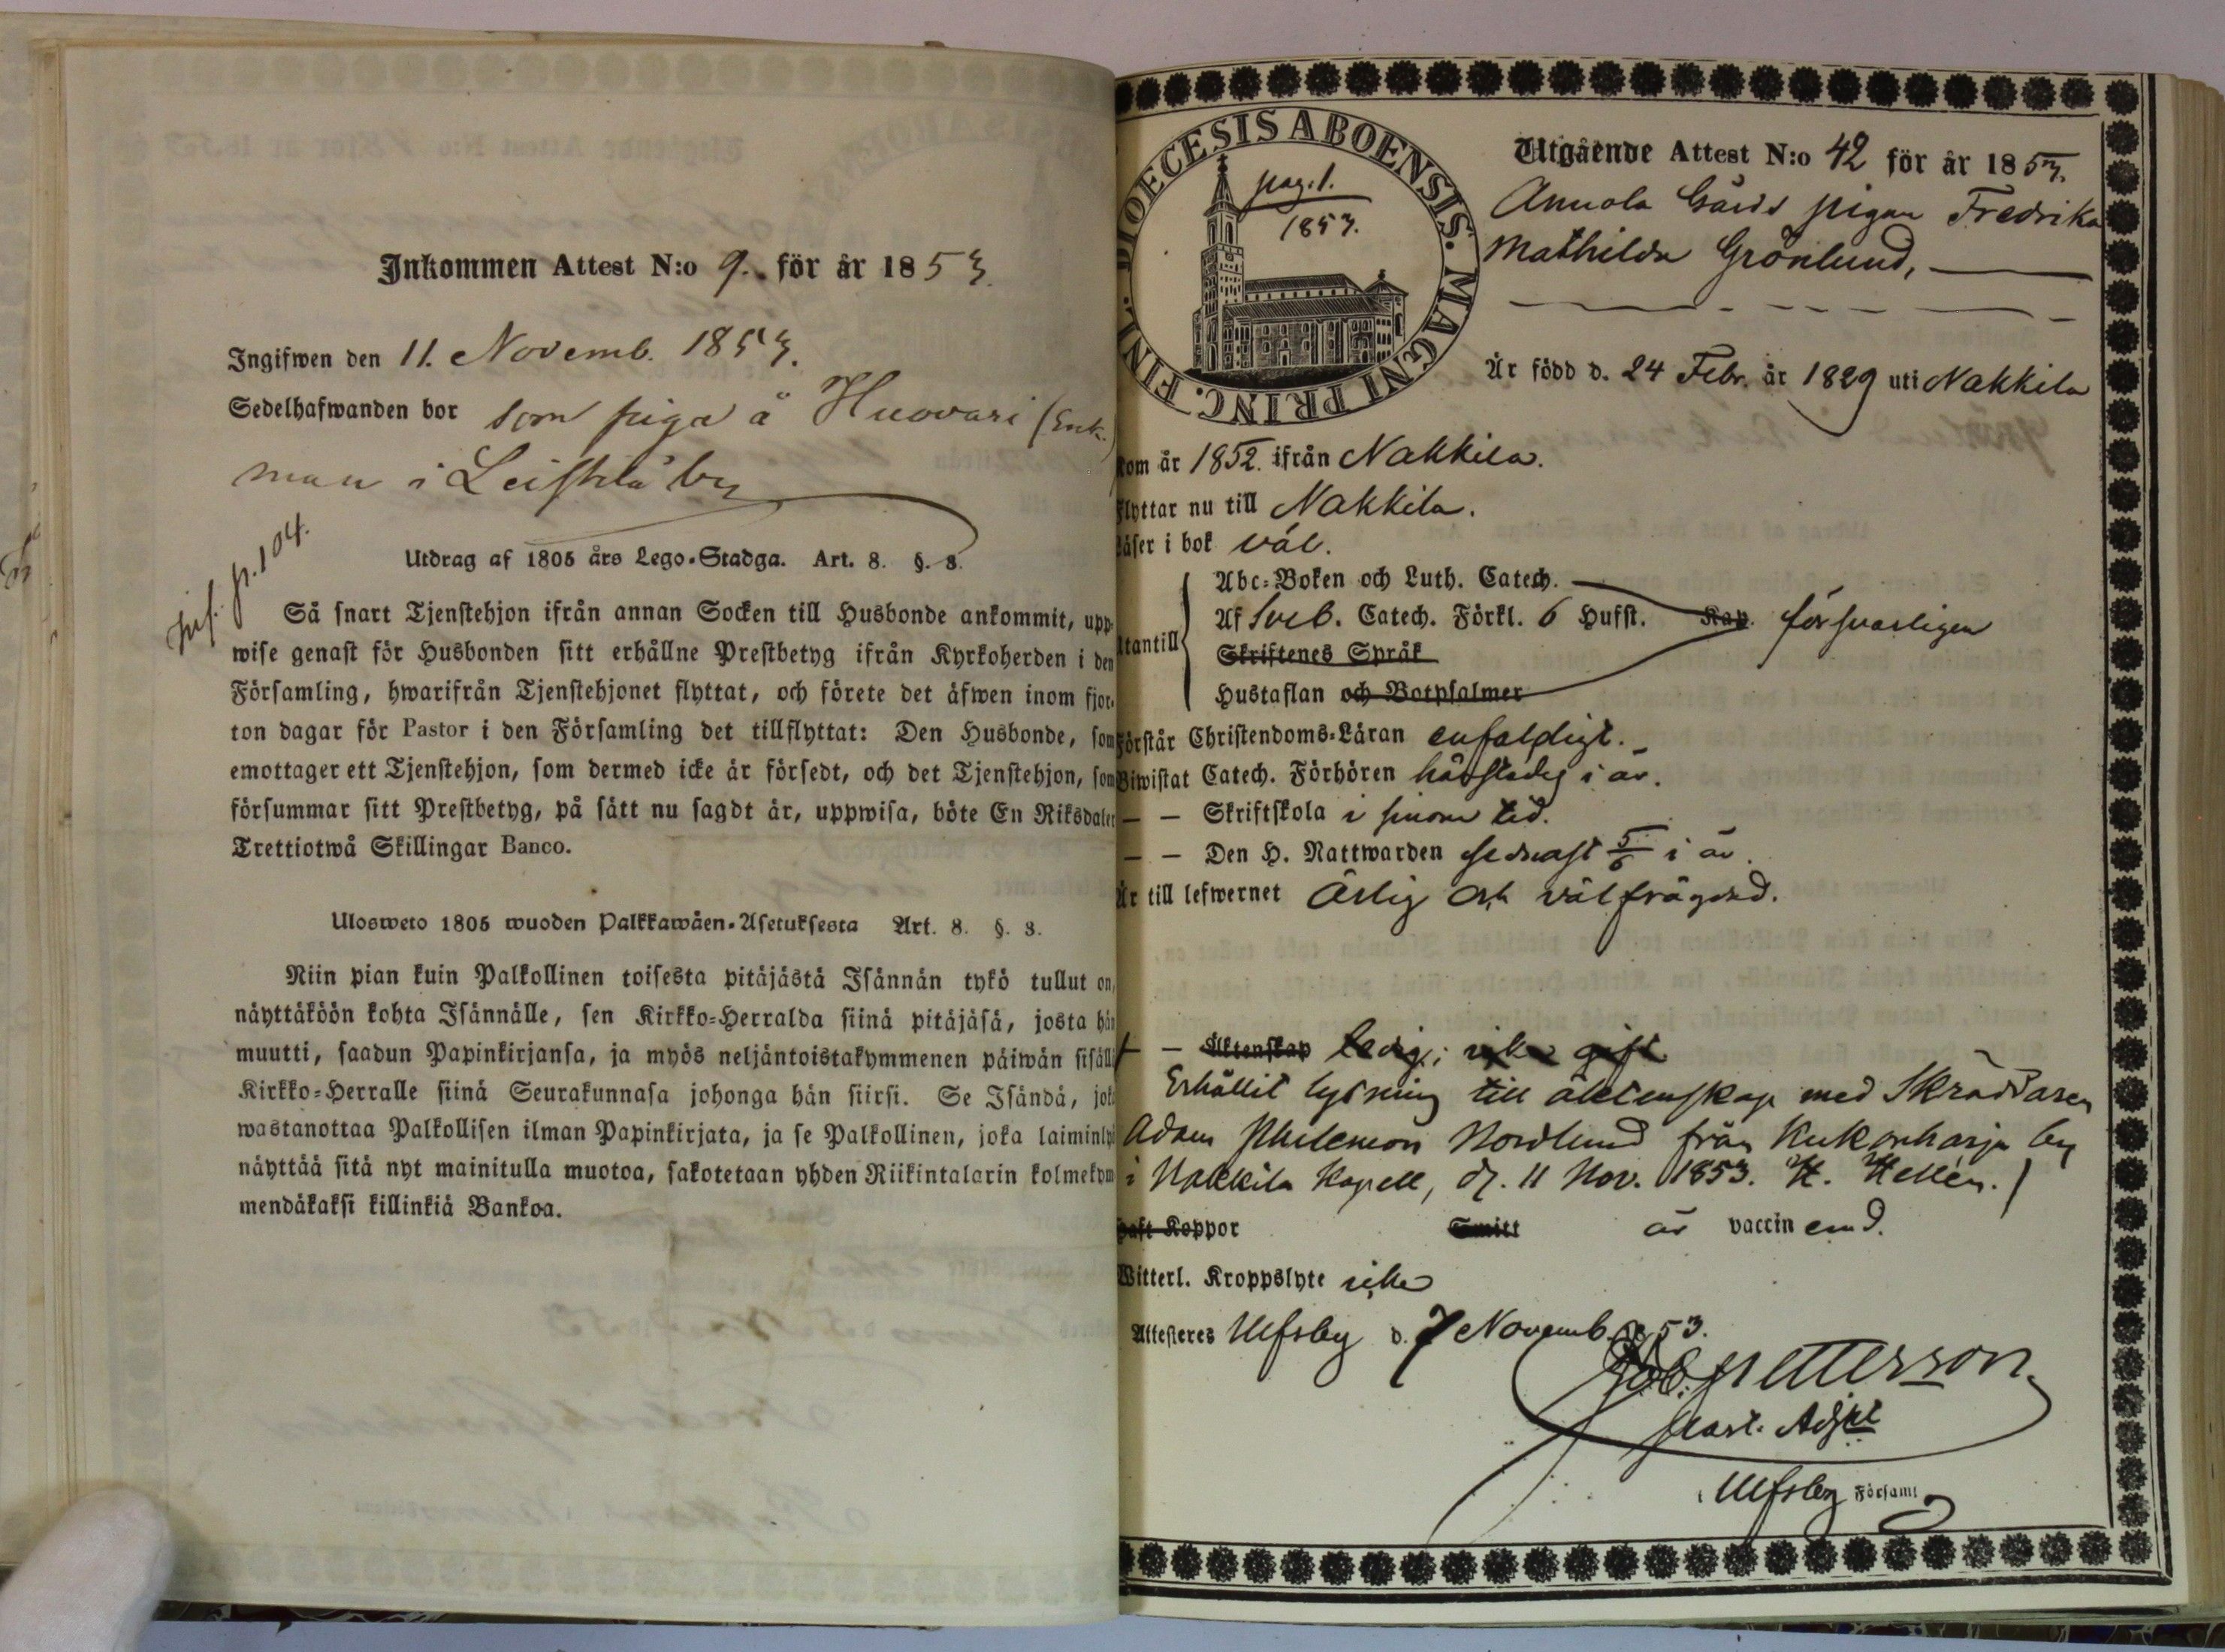 Inkommen Attest N:o 9. för år 1853.
Ingifwen den 11. Novemb. 1853.
Sedelhafwanden bor som piga å Huovari (Enk.
man i Leistilä by
inf. p. 104.
Utdrag af 1805 års Lego-Stadga. Art. 8. §. 3.
Så snart Tjenstehjon ifrån annan Socken till Husbonde ankommit, upp-
wise genast för Husbonden sitt erhållne Prestbetyg ifrån Kyrkoherden i den
Församling, hwarifrån Tjenstehjonet flyttat, och förete det äfwen inom fjor-
ton dagar för Pastor i den Församling det tillflyttat: Den Husbonde, som
emottager ett Tjenstehjon, som dermed icke är försedt, och det Tjenstehjon, som
försummar sitt Prestbetyg, på sätt nu sagdt är, uppwisa, böte En Riksdaler
Trettiotwå Skillingar Banco.
Ulosweto 1805 wuoden Palkkawäen-Asetuksesta Art. 8. §. 3.
Niin pian kuin Palkollinen toisesta pitäjästä Isännän tykö tullut on,
näyttäköön kohta Isännälle, sen Kirkko-Herralda siinä pitäjäsä, josta hän
muutti, saadun Papinkirjansa, ja myös neljäntoistakymmenen päiwän sisäll
Kirkko-Herralle siinä Seurakunnasa johonga hän siirsi. Se Isändä, jok
wastanottaa Palkollisen ilman Papinkirjata, ja se Palkollinen, joka laiminly
näyttää sitä nyt mainitulla muotoa, sakotetaan yhden Riikintalarin kolmekym
mendäkaksi killinkiä Bankoa.
DIOECESIS ABOENSIS. MAGNI PRINC. FINL.
pag. 1.
1853.
Utgående Attest N:o 42 för år 1853.
Annola Gårds pigan Fredrika
Mathilda Grönlund,
Är född d. 24 Febr. år 1829 uti Nakkila
kom år 1852. ifrån Nakkila.
Flyttar nu till Nakkila.
Läser i bok väl.
Abc-Boken och Luth. Catech.
Utantill Af Sveb. Catech. Förkl. 6 Hufst. Kap. försvarligen
Skriftenes Språk
Hustaflan och Botpsalmer
Förstår Christendoms-Läran enfaldigt.
Biwistat Catech. Förhören härstädes i år.
— — Skriftskola i sinom tid.
— — Den H. Nattwarden sednast 5/6 i år.
Är till lefwernet ärlig och välfrägdad.
— — Äktenskap ledig; icke gift
Erhållit lysning till äktenskap med Skräddaren
Adam Philemon Nordlund från Kukonharja by
i Nakkila Kapell, d. 11 Nov. 1853. H. Hellén.
Haft Koppor Smitt är vaccinerad.
Witterl. Kroppslyte icke
Attesteres Ulfsby d. 7 Novemb. 1853.
Petterson
Past. Adjkt
i Ulfsby Församl.